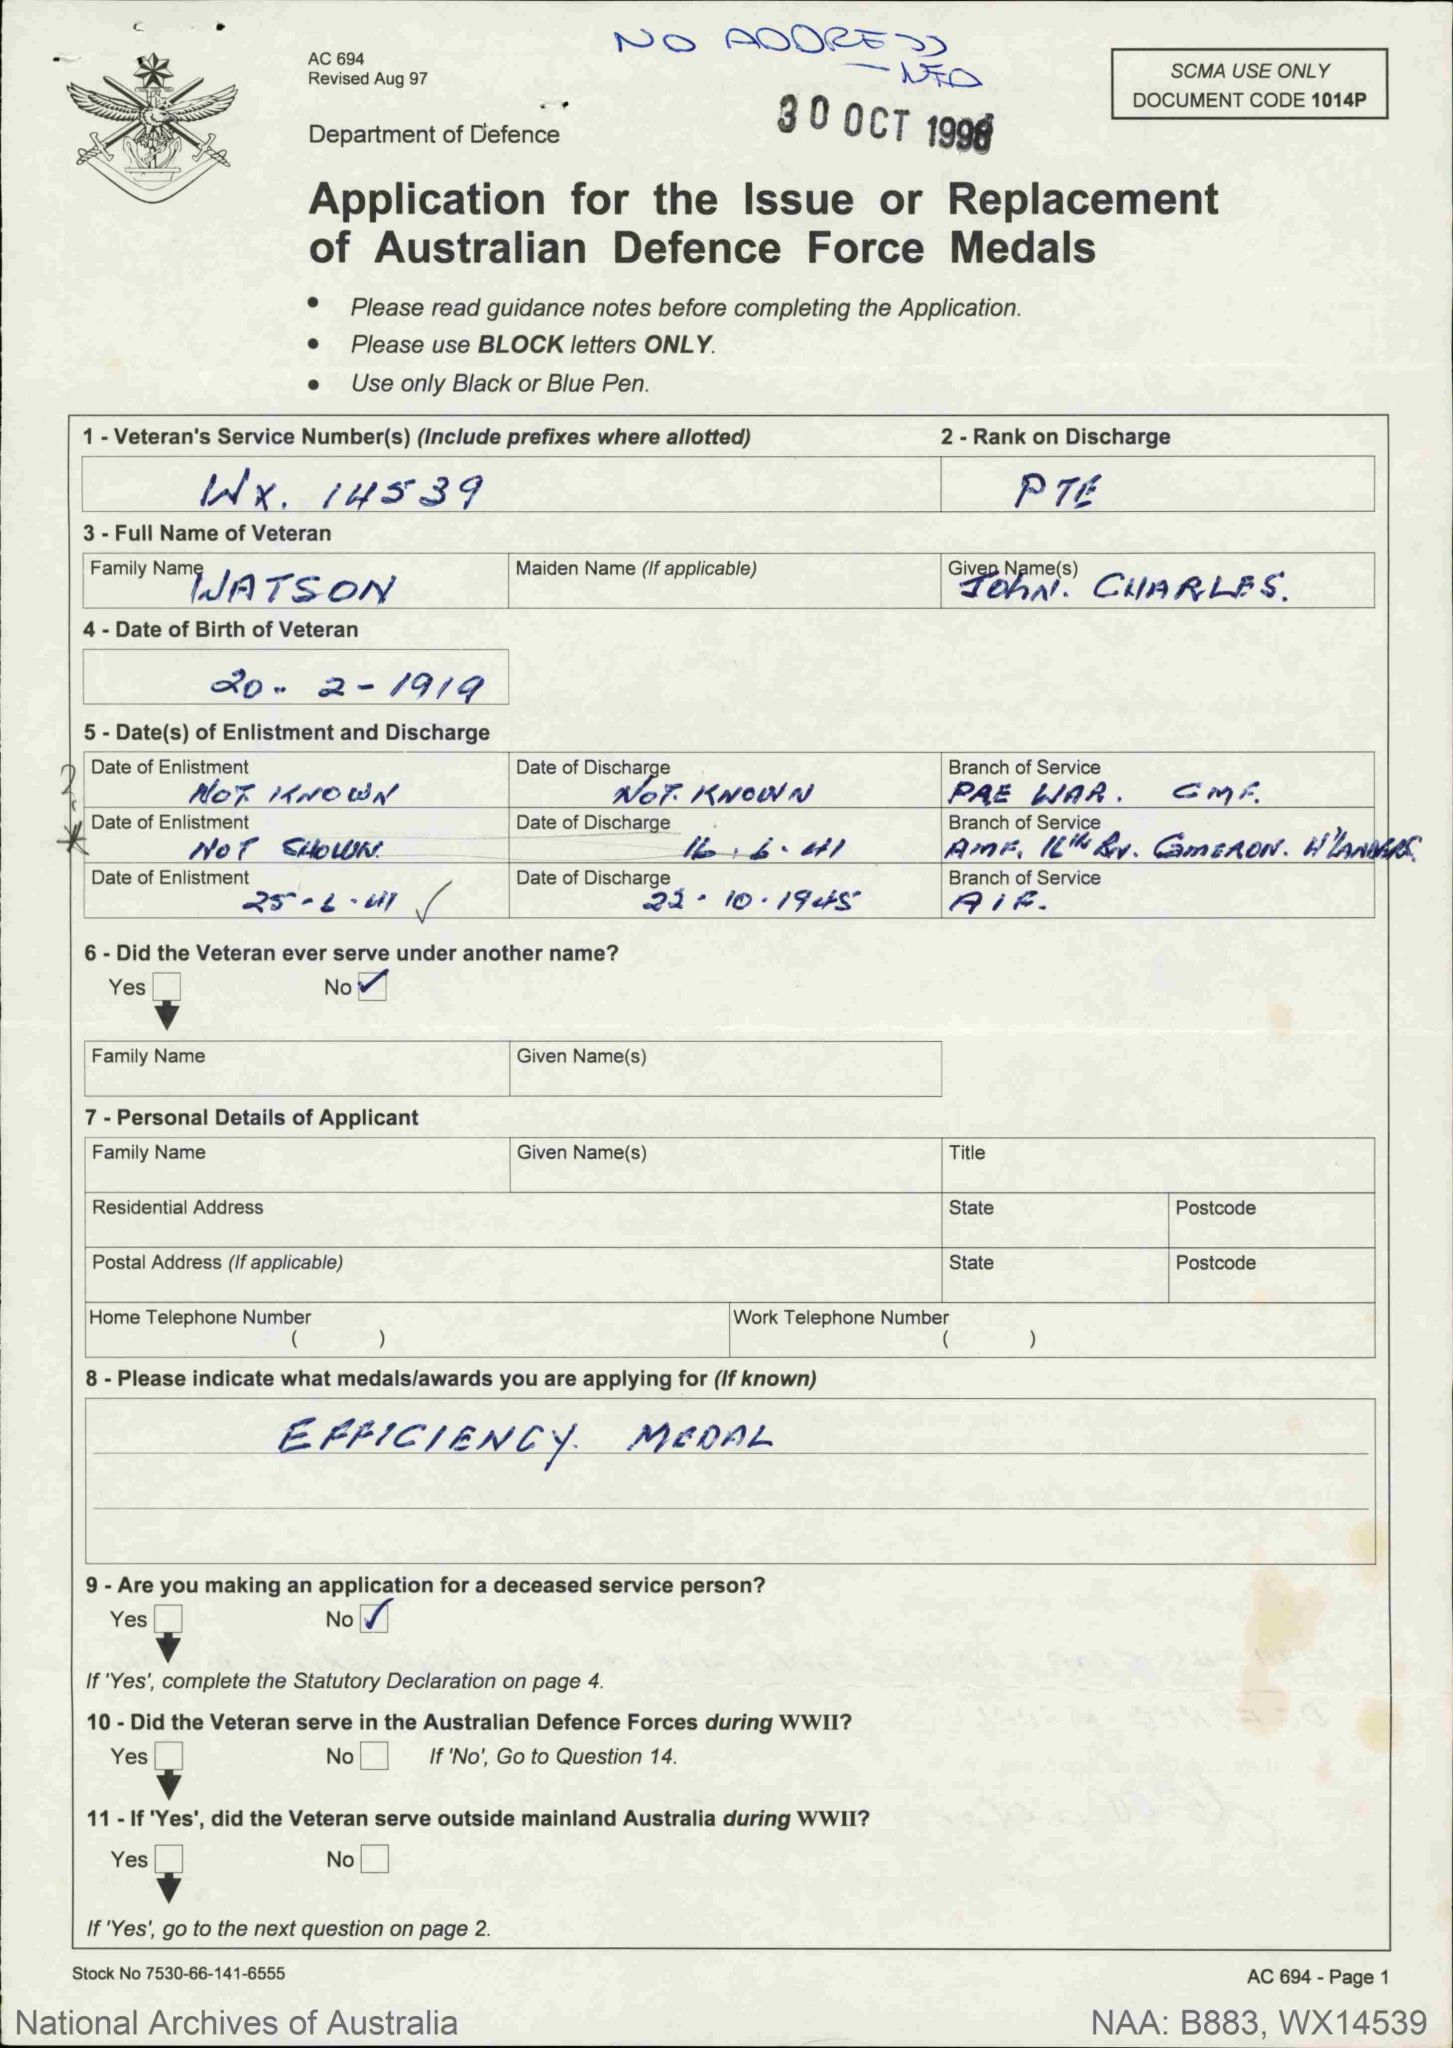 NO ADDRESS
- NFD
AC 694
Revised Aug 97
SCMA USE ONLY
DOCUMENT CODE 1014P
Department of Defence
30 OCT 1998
Application for the Issue or Replacement
of Australian Defence Force Medals
• Please read guidance notes before completing the Application.
• Please use BLOCK letters ONLY.
• Use only Black or Blue Pen.
1 - Veteran's Service Number(s) (Include prefixes where allotted) 2 - Rank on Discharge
WX. 14539 PTE
3 - Full Name of Veteran
Family Name Maiden Name (If applicable) Given Name(s)
WATSON JOHN. CHARLES.
4 - Date of Birth of Veteran
20.. 2 - 1919
5 - Date(s) of Enlistment and Discharge
Date of Enlistment Date of Discharge Branch of Service
? NOT KNOWN NOT. KNOWN PRE WAR. CMF.
Date of Enlistment Date of Discharge Branch of Service
* NOT SHOWN. 16.6.41 AMF. 16th Bn. CAMERON. H'LANDERS.
Date of Enlistment Date of Discharge Branch of Service
25-6.41 22.10.1945 AIF.
6 - Did the Veteran ever serve under another name?
Yes No ✓
Family Name Given Name(s)
7 - Personal Details of Applicant
Family Name Given Name(s) Title
Residential Address State Postcode
Postal Address (If applicable) State Postcode
Home Telephone Number Work Telephone Number
( ) ( )
8 - Please indicate what medals/awards you are applying for (If known)
EFFICIENCY. MEDAL
9 - Are you making an application for a deceased service person?
Yes No ✓
If 'Yes', complete the Statutory Declaration on page 4.
10 - Did the Veteran serve in the Australian Defence Forces during WWII?
Yes No If 'No', Go to Question 14.
11 - If 'Yes', did the Veteran serve outside mainland Australia during WWII?
Yes No
If 'Yes', go to the next question on page 2.
Stock No 7530-66-141-6555 AC 694 - Page 1
National Archives of Australia NAA: B883, WX14539